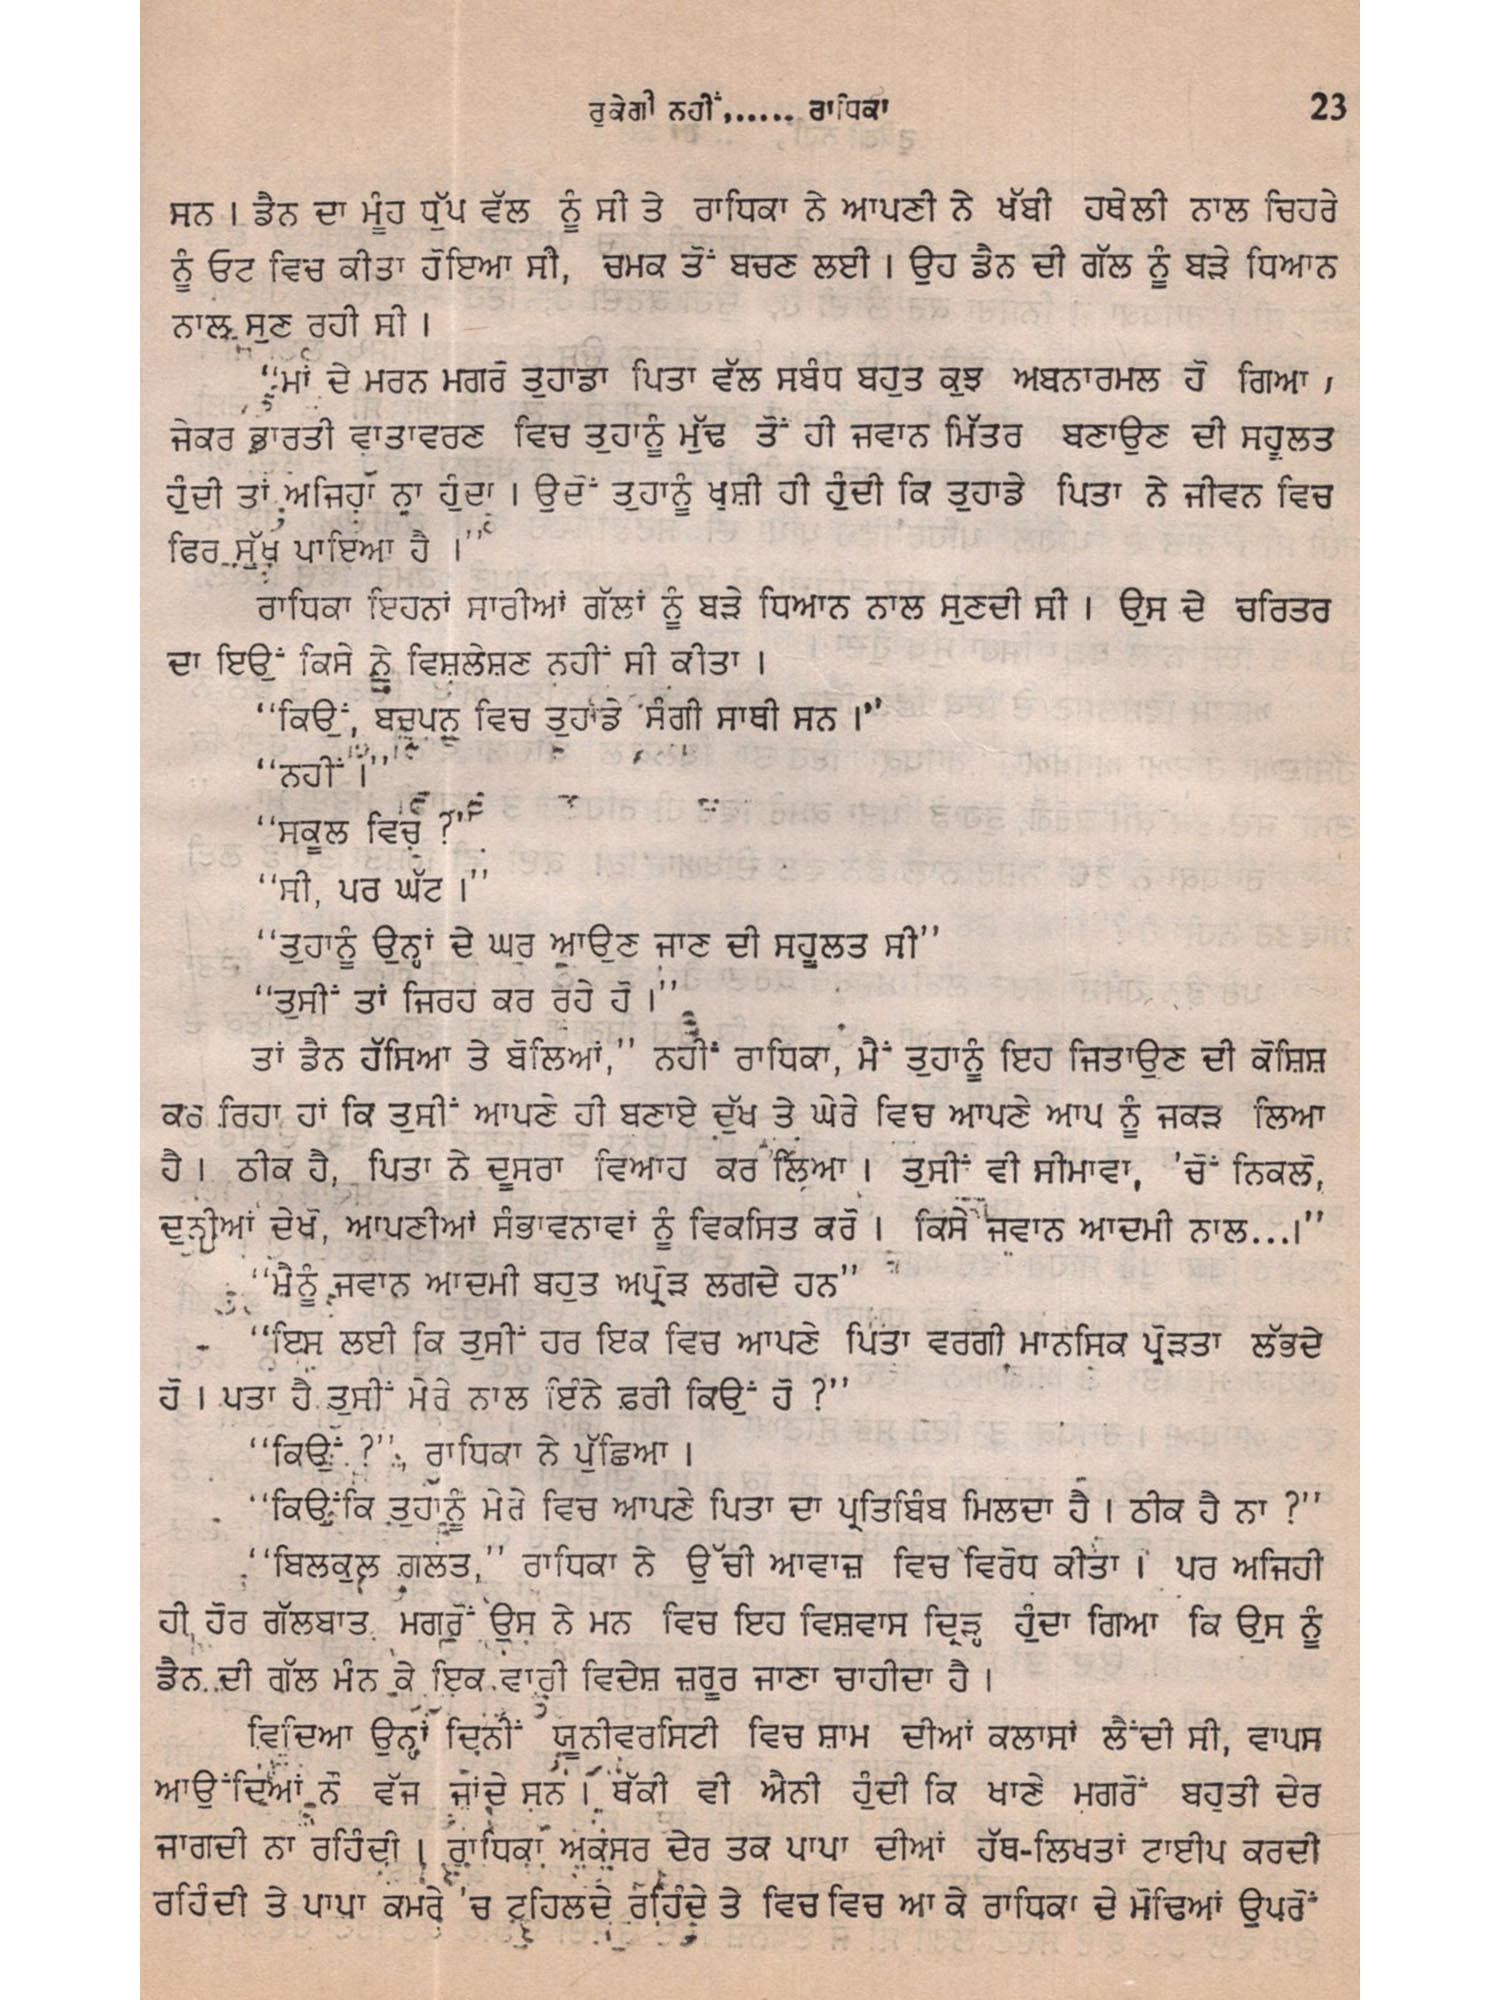 ਰੁਕੇਗੀ ਨਹੀਂ,...... ਰਾਧਿਕਾ 23
ਸਨ । ਡੈਨ ਦਾ ਮੂੰਹ ਧੁੱਪ ਵੱਲ ਨੂੰ ਸੀ ਤੇ ਰਾਧਿਕਾ ਨੇ ਆਪਣੀ ਨੇ ਖੱਬੀ ਹਥੇਲੀ ਨਾਲ ਚਿਹਰੇ
ਨੂੰ ਓਟ ਵਿਚ ਕੀਤਾ ਹੋਇਆ ਸੀ, ਚਮਕ ਤੋਂ ਬਚਣ ਲਈ । ਉਹ ਡੈਨ ਦੀ ਗੱਲ ਨੂੰ ਬੜੇ ਧਿਆਨ
ਨਾਲ ਸੁਣ ਰਹੀ ਸੀ ।
“ਮਾਂ ਦੇ ਮਰਨ ਮਗਰੋਂ ਤੁਹਾਡਾ ਪਿਤਾ ਵੱਲ ਸਬੰਧ ਬਹੁਤ ਕੁਝ ਅਬਨਾਰਮਲ ਹੋ ਗਿਆ ,
ਜੇਕਰ ਭਾਰਤੀ ਵਾਤਾਵਰਣ ਵਿਚ ਤੁਹਾਨੂੰ ਮੁੱਢ ਤੋਂ ਹੀ ਜਵਾਨ ਮਿੱਤਰ ਬਣਾਉਣ ਦੀ ਸਹੂਲਤ
ਹੁੰਦੀ ਤਾਂ ਅਜਿਹਾ ਨਾ ਹੁੰਦਾ । ਉਦੋਂ ਤੁਹਾਨੂੰ ਖੁਸ਼ੀ ਹੀ ਹੁੰਦੀ ਕਿ ਤੁਹਾਡੇ ਪਿਤਾ ਨੇ ਜੀਵਨ ਵਿਚ
ਫਿਰ ਸੁੱਖ ਪਾਇਆ ਹੈ ।”
ਰਾਧਿਕਾ ਇਹਨਾਂ ਸਾਰੀਆਂ ਗੱਲਾਂ ਨੂੰ ਬੜੇ ਧਿਆਨ ਨਾਲ ਸੁਣਦੀ ਸੀ । ਉਸ ਦੇ ਚਰਿਤਰ
ਦਾ ਇਉਂ ਕਿਸੇ ਨੇ ਵਿਸ਼ਲੇਸ਼ਣ ਨਹੀਂ ਸੀ ਕੀਤਾ ।
“ਕਿਉਂ, ਬਚਪਨ ਵਿਚ ਤੁਹਾਡੇ ਸੰਗੀ ਸਾਥੀ ਸਨ ।”
“ਨਹੀਂ ।”
“ਸਕੂਲ ਵਿਚ ?”
“ਸੀ, ਪਰ ਘੱਟ ।”
“ਤੁਹਾਨੂੰ ਉਨ੍ਹਾਂ ਦੇ ਘਰ ਆਉਣ ਜਾਣ ਦੀ ਸਹੂਲਤ ਸੀ”
“ਤੁਸੀਂ ਤਾਂ ਜਿਰਹ ਕਰ ਰਹੇ ਹੋ ।”
ਤਾਂ ਡੈਨ ਹੱਸਿਆ ਤੇ ਬੋਲਿਆਂ,” ਨਹੀਂ ਰਾਧਿਕਾ, ਮੈਂ ਤੁਹਾਨੂੰ ਇਹ ਜਿਤਾਉਣ ਦੀ ਕੋਸ਼ਿਸ਼
ਕਰ ਰਿਹਾ ਹਾਂ ਕਿ ਤੁਸੀਂ ਆਪਣੇ ਹੀ ਬਣਾਏ ਦੁੱਖ ਤੇ ਘੇਰੇ ਵਿਚ ਆਪਣੇ ਆਪ ਨੂੰ ਜਕੜ ਲਿਆ
ਹੈ । ਠੀਕ ਹੈ, ਪਿਤਾ ਨੇ ਦੂਸਰਾ ਵਿਆਹ ਕਰ ਲਿਆ । ਤੁਸੀਂ ਵੀ ਸੀਮਾਵਾ, 'ਚੋਂ ਨਿਕਲੋ,
ਦੁਨੀਆਂ ਦੇਖੋ, ਆਪਣੀਆਂ ਸੰਭਾਵਨਾਵਾਂ ਨੂੰ ਵਿਕਸਿਤ ਕਰੋ । ਕਿਸੇ ਜਵਾਨ ਆਦਮੀ ਨਾਲ...।”
“ਮੈਨੂੰ ਜਵਾਨ ਆਦਮੀ ਬਹੁਤ ਅਪ੍ਰੋੜ ਲਗਦੇ ਹਨ”
“ਇਸ ਲਈ ਕਿ ਤੁਸੀਂ ਹਰ ਇਕ ਵਿਚ ਆਪਣੇ ਪਿਤਾ ਵਰਗੀ ਮਾਨਸਿਕ ਪ੍ਰੋੜਤਾ ਲੱਭਦੇ
ਹੋ । ਪਤਾ ਹੈ ਤੁਸੀਂ ਮੇਰੇ ਨਾਲ ਇੰਨੇ ਫ਼ਰੀ ਕਿਉਂ ਹੋ ?”
“ਕਿਉਂ ?”, ਰਾਧਿਕਾ ਨੇ ਪੁੱਛਿਆ ।
“ਕਿਉਂਕਿ ਤੁਹਾਨੂੰ ਮੇਰੇ ਵਿਚ ਆਪਣੇ ਪਿਤਾ ਦਾ ਪ੍ਰਤਿਬਿੰਬ ਮਿਲਦਾ ਹੈ । ਠੀਕ ਹੈ ਨਾ ?”
“ਬਿਲਕੁਲ ਗ਼ਲਤ,” ਰਾਧਿਕਾ ਨੇ ਉੱਚੀ ਆਵਾਜ਼ ਵਿਚ ਵਿਰੋਧ ਕੀਤਾ । ਪਰ ਅਜਿਹੀ
ਹੀ ਹੋਰ ਗੱਲਬਾਤ ਮਗਰੋਂ ਉਸ ਨੇ ਮਨ ਵਿਚ ਇਹ ਵਿਸ਼ਵਾਸ ਦ੍ਰਿੜ੍ਹ ਹੁੰਦਾ ਗਿਆ ਕਿ ਉਸ ਨੂੰ
ਡੈਨ ਦੀ ਗੱਲ ਮੰਨ ਕੇ ਇਕ ਵਾਰੀ ਵਿਦੇਸ਼ ਜ਼ਰੂਰ ਜਾਣਾ ਚਾਹੀਦਾ ਹੈ ।
ਵਿਦਿਆ ਉਨ੍ਹਾਂ ਦਿਨੀਂ ਯੂਨੀਵਰਸਿਟੀ ਵਿਚ ਸ਼ਾਮ ਦੀਆਂ ਕਲਾਸਾਂ ਲੈਂਦੀ ਸੀ, ਵਾਪਸ
ਆਉਂਦਿਆਂ ਨੌਂ ਵੱਜ ਜਾਂਦੇ ਸਨ । ਥੱਕੀ ਵੀ ਐਨੀ ਹੁੰਦੀ ਕਿ ਖਾਣੇ ਮਗਰੋਂ ਬਹੁਤੀ ਦੇਰ
ਜਾਗਦੀ ਨਾ ਰਹਿੰਦੀ । ਰਾਧਿਕਾ ਅਕਸਰ ਦੇਰ ਤਕ ਪਾਪਾ ਦੀਆਂ ਹੱਥ-ਲਿਖਤਾਂ ਟਾਈਪ ਕਰਦੀ
ਰਹਿੰਦੀ ਤੇ ਪਾਪਾ ਕਮਰੇ 'ਚ ਟਹਿਲਦੇ ਰਹਿੰਦੇ ਤੇ ਵਿਚ ਵਿਚ ਆ ਕੇ ਰਾਧਿਕਾ ਦੇ ਮੋਢਿਆਂ ਉਪਰੋਂ